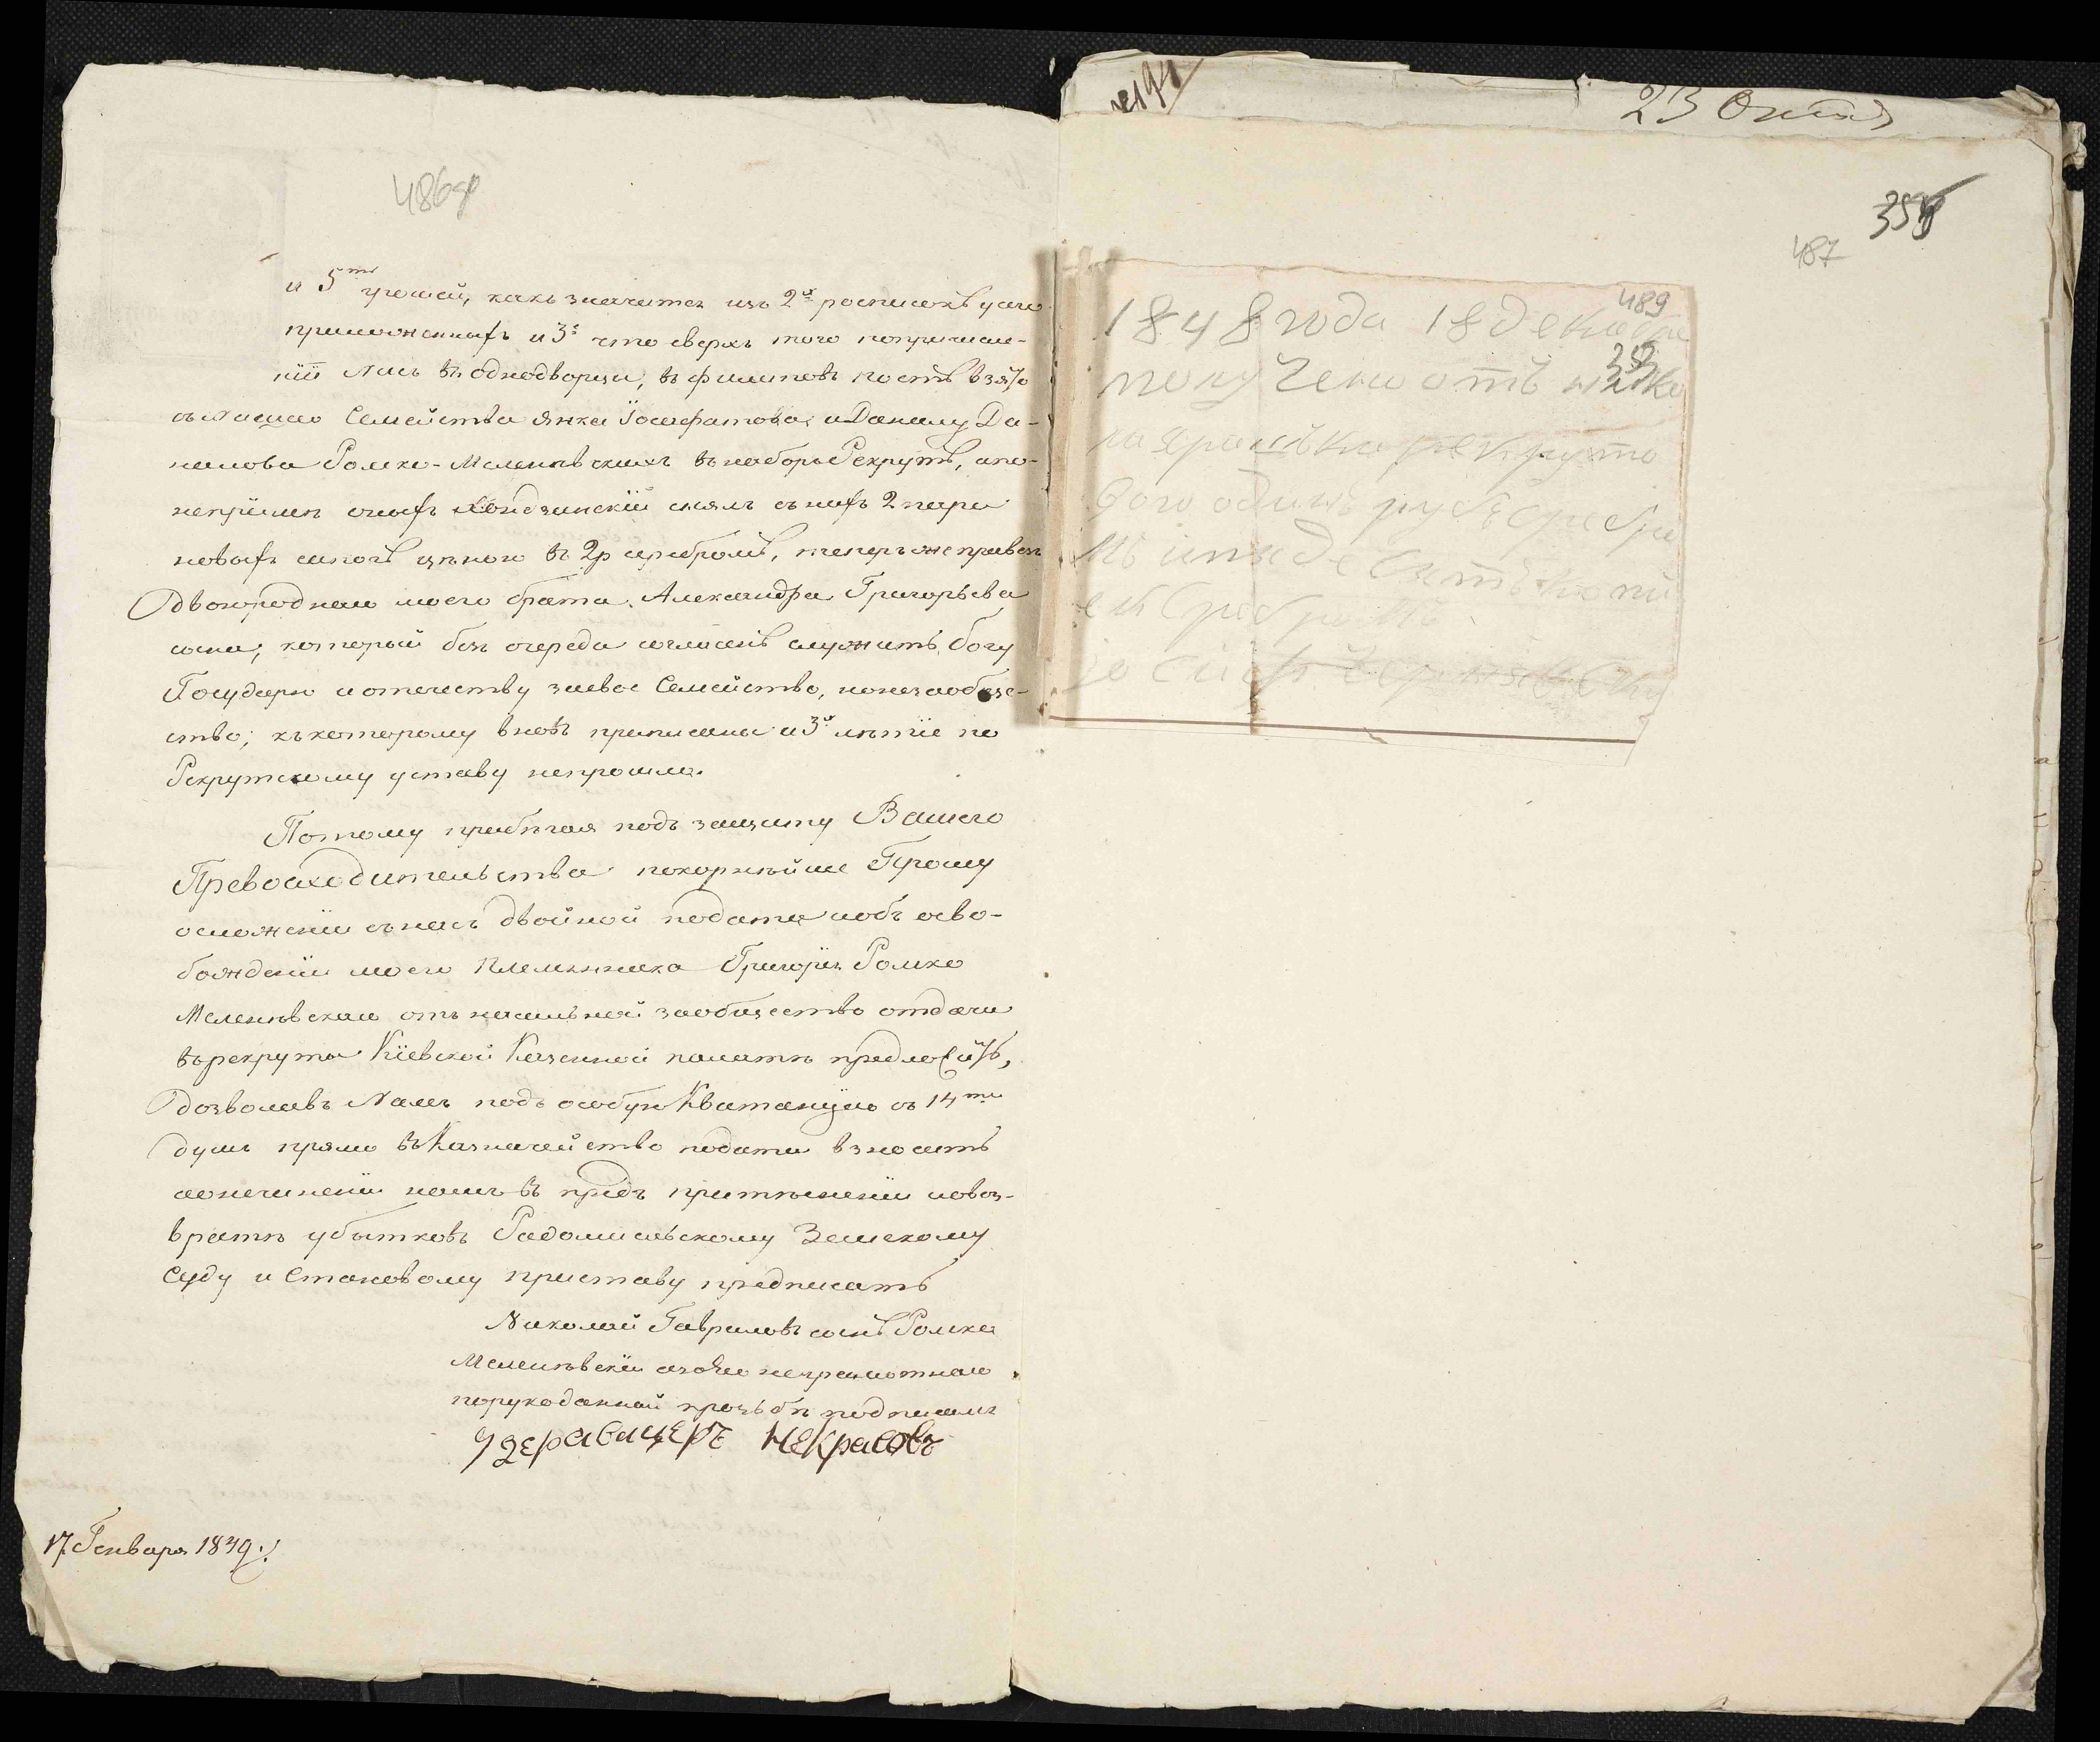 486об
и 5ти грошей, какъ значится изъ 2х росписокъ у сего
приложенныхъ и 3е что сверхъ того по причисле-
нїи насъ въ однодворцы, въ филиповъ постъ взято
съ нашего Семейства Янка Іосафатова и Данилу Да-
нилова Ромко-Меленѣвскихъ въ наборъ Рекрутъ, а по
непрїемѣ оныхъ снялъ съ нихъ 2 пары
новыхъ сапогъ цѣною въ 2р серебромъ, теперь же привезъ
двоюроднаго моего брата Александра Григорьева
сына, который безъ очереди согласенъ служить богу
Государю и отечеству за свое Семейство, но не за обще-
ство, къ которому вновь приписаны и 3х лѣтїе по
Рекрутскому уставу не прошло.
Потому прибѣгая подъ защиту Вашего
Превосходительства покорнѣйше Прошу
о сложенїи съ насъ двойной подати и объ осво-
божденїи моего племянника Григорїя Ромко
Меленѣвскаго отъ насильной за общество отдачи
въ рекруты Кїевской Казенной палатѣ предложить,
дозволивъ Намъ подъ особую Квитанцїю съ 14ти
душъ прямо въ Казначейство подати взносить
а о нечиненїи намъ въ предъ притѣсненїи и о воз-
вратѣ убытковъ Радомысльскому Земскому
Суду и Становому приставу предписать
Николай Гавриловъ сынъ Ромко
Меленѣвскїй а за его неграмотнаго
по рукоданной прозьбѣ подписалъ
Некрасовъ
17 Генваря 1849.
23 Октя
487
489
1848 года 18 декабря
получено отъ Нико
рекрутс
ого одинъ рубъ сребр
мъ и пядесятъ копѣ
ей сребромъ